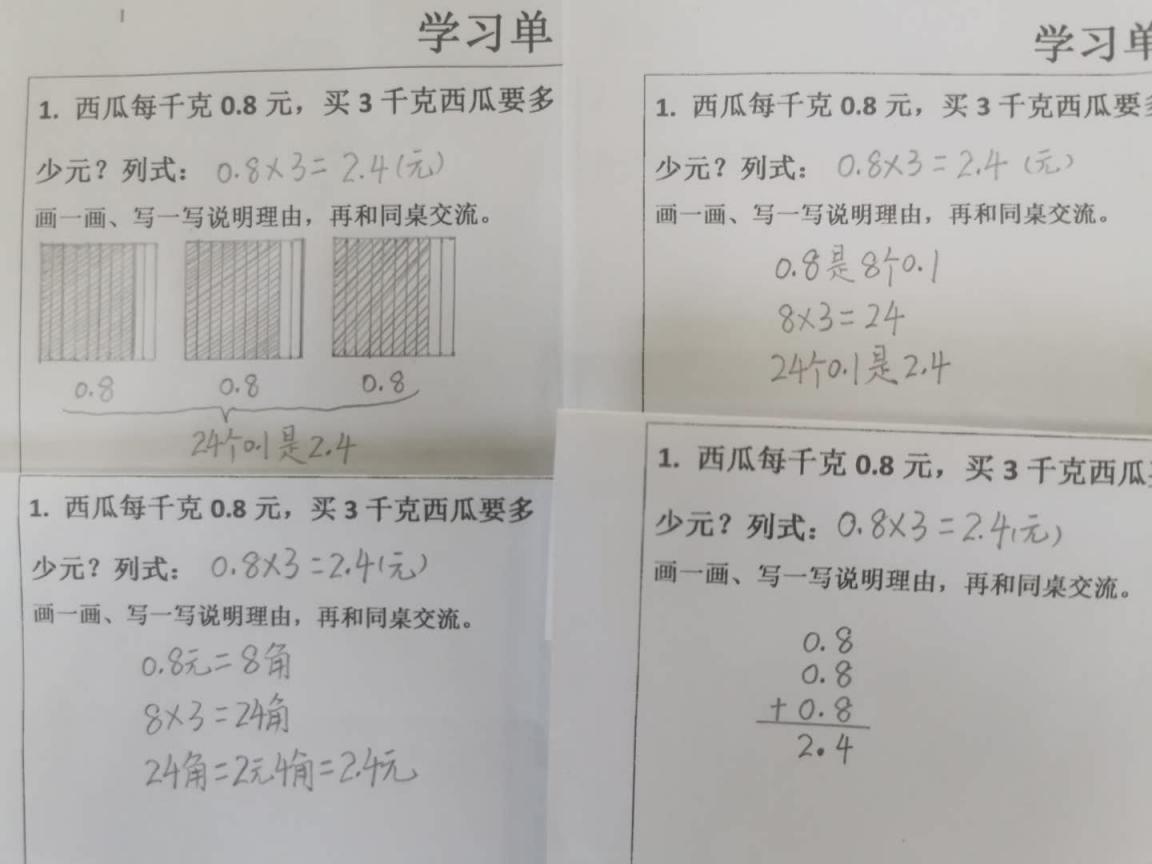 学习单
1. 西瓜每千克 0.8 元，买 3 千克西瓜要多
少元？列式： 0.8×3=2.4(元)
画一画、写一写说明理由，再和同桌交流。
0.8 0.8 0.8
24个0.1是2.4
学习单
1. 西瓜每千克 0.8 元，买 3 千克西瓜要
少元？列式： 0.8×3=2.4 (元)
画一画、写一写说明理由，再和同桌交流。
0.8是8个0.1
8×3=24
24个0.1是2.4
1. 西瓜每千克 0.8 元，买 3 千克西瓜要多
少元？列式： 0.8×3=2.4(元)
画一画、写一写说明理由，再和同桌交流。
0.8元=8角
8×3=24角
24角=2元4角=2.4元
1. 西瓜每千克 0.8 元，买 3 千克西瓜
少元？列式：0.8×3=2.4(元)
画一画、写一写说明理由，再和同桌交流。
0.8
0.8
+0.8
2.4